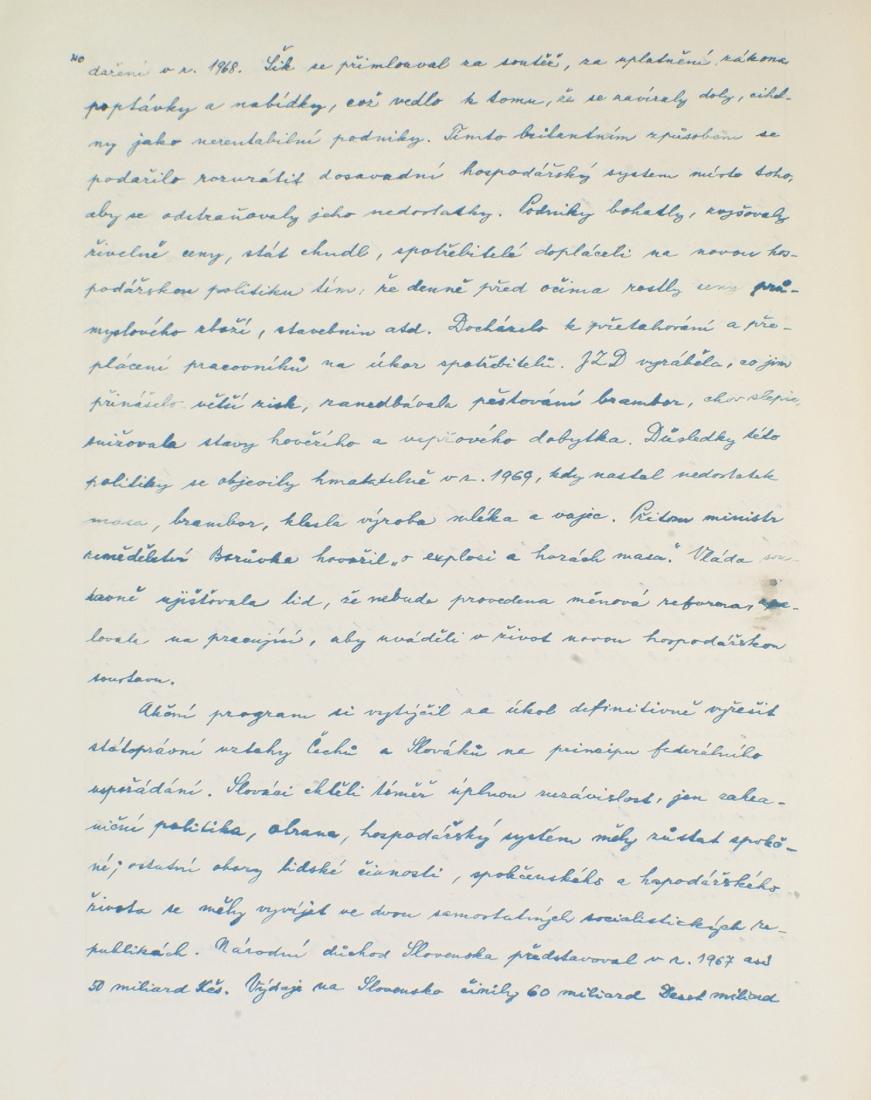 110
daření v r. 1968. Šik se přimlouval za soutěž, za uplatnění zákona
poptávky a nabídky, což vedlo k tomu, že se zavíraly doly, cihel-
ny jako nerentabilní podniky. Tímto britantním způsobem se
podařilo rozvrátit dosavadní hospodářský system místo toho,
aby se odstraňovaly jeho nedostatky. Podniky bohatly, zvyšovaly
živelně ceny, stát chudl, spotřebitelé dopláceli na novou hos-
podářskou politiku tím, že denně před očima rostly ceny prů-
myslového zboží, stavebnin atd. Docházelo k přetahování a pře-
plácení pracovníků na úkor spotřebitelů. JZD vyráběla, co jim
přinášelo větší zisk, zanedbávala pěstování brambor, chov slepic,
snižovala stavy hovězího a vepřového dobytka. Důsledky této
politiky se objevily hmatatelně v r. 1969, kdy nastal nedostatek
masa, brambor, klesla výroba mléka a vajec. Přitom ministr
zemědělství Borůvka hovořil „o explosi a horách masa." Vláda sou-
tavně ujišťovala lid, že nebude provedena měnová reforma,
lovala na pracující, aby uváděli v život novou hospodářskou
soustavu.
Akční program si vytýčil za úkol definitivně vyřešit
státoprávní vztahy Čechů a Slováků na principu federálního
uspořádání. Slováci chtěli téměř úplnou nezávislost, jen zahra-
niční politika, obrana, hospodářský systém měly zůstat společ-
né; ostatní obory lidské činnosti, společenského a hspodářského
života se měly vyvíjet ve dvou samostatných socialistických re-
publikách. Národní důchod Slovenska představoval v r. 1967 asi
50 miliard Kčs. Výdaje na Slovensko činily 60 miliard Deset miliard